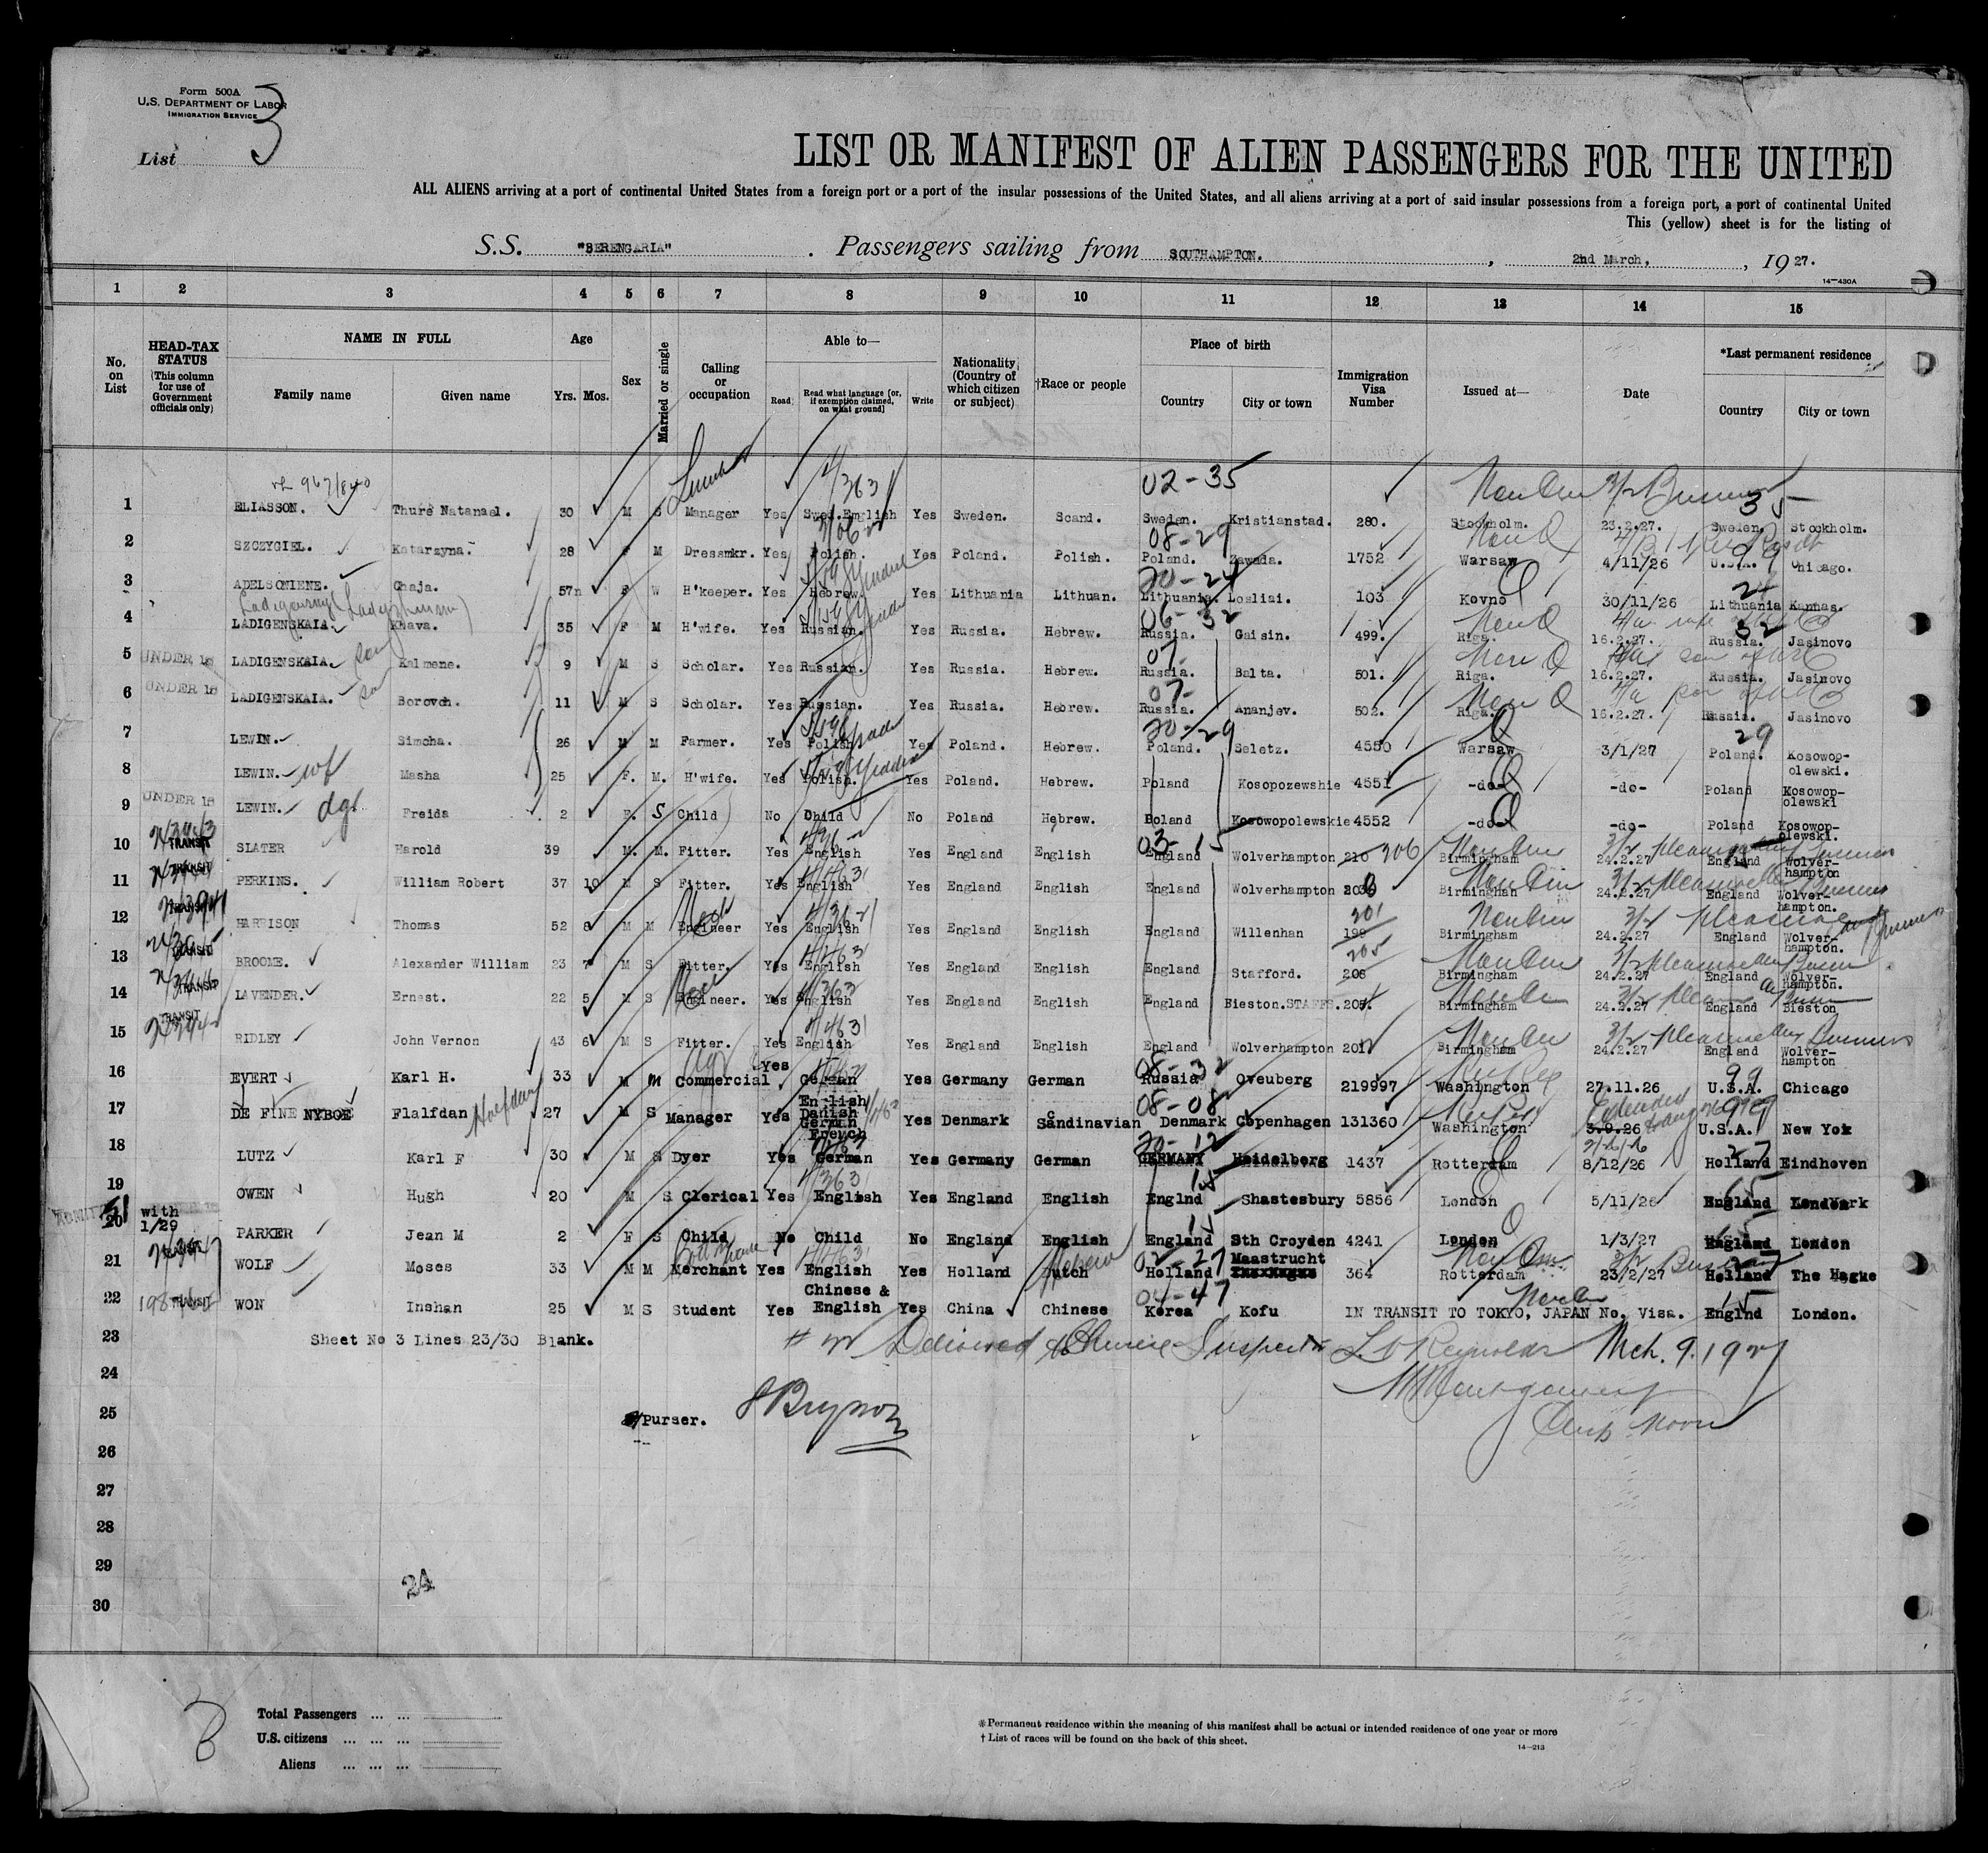 Form 500A
U.S. DEPARTMENT OF LABOR
IMMIGRATION SERVICE
List 3
LIST OR MANIFEST OF ALIEN PASSENGERS FOR THE UNITED
ALL ALIENS arriving at a port of continental United States from a foreign port or a port of the insular possessions of the United States, and all aliens arriving at a port of said insular possessions from a foreign port, a port of continental United
This (yellow) sheet is for the listing of
S.S. "BERENGARIA" . Passengers sailing from SOUTHAMPTON. , 2nd March, , 1927.
14—430A
1 2 3 4 5 6 7 8 9 10 11 12 13 14 15
No. on List
HEAD-TAX STATUS (This column for use of Government officials only)
NAME IN FULL
Family name Given name
Age Yrs. Mos.
Sex
Married or single
Calling or occupation
Able to—
Read Read what language [or, if exemption claimed, on what ground] Write
Nationality (Country of which citizen or subject)
†Race or people
Place of birth
Country City or town
Immigration Visa Number
Issued at—
Date
*Last permanent residence
Country City or town
02-35
1 ELIASSON. Thure Natanael. 30 M S Manager Yes Swed.English Yes Sweden. Scand. Sweden. Kristianstad. 280. Stockholm. 23.2.27. Sweden. Stockholm.
08-29
2 SZCZYGIEL. Katarzyna. 28 F M Dressmkr. Yes Polish. Yes Poland. Polish. Poland. Zawada. 1752 Warsaw 4/11/26 U.S.A. Chicago.
20-24
3 ADELSONIENE. Chaja. 57 F W H'keeper. Yes Hebrew. Yes Lithuania Lithuan. Lithuania. Losliai. 103 Kovno 30/11/26 Lithuania Kannas.
06-32
4 LADIGENSKAIA. Khava. 35 F M H'wife. Yes Russian. Yes Russia. Hebrew. Russia. Gaisin. 499. Riga. 16.2.27. Russia. Jasinovo
07-
5 UNDER 16 LADIGENSKAIA. son Kalmene. 9 M S Scholar. Yes Russian. Yes Russia. Hebrew. Russia. Balta. 501. Riga. 16.2.27. Russia. Jasinovo
07-
6 UNDER 16 LADIGENSKAIA. son Borovch. 11 M S Scholar. Yes Russian. Yes Russia. Hebrew. Russia. Ananjev. 502. Riga. 16.2.27. Russia. Jasinovo
20-29
7 LEWIN. Simcha. 26 M M Farmer. Yes Polish Yes Poland. Hebrew. Poland. Seletz. 4550 Warsaw 3/1/27 Poland. Kosowop-olewski.
8 LEWIN. wf Masha 25 F. M. H'wife. Yes Polish. Yes Poland. Hebrew. Poland Kosopozewshie 4551 -do- -do- Poland Kosowop-olewski
9 UNDER 16 LEWIN. dgt Freida 2 F. S Child No Child No Poland Hebrew. Poland Kosowopolewskie 4552 -do- -do- Poland Kosowop-olewski.
03-15
10 TRANSIT SLATER Harold 39 M. M. Fitter. Yes English Yes England English England Wolverhampton 210 206 Birmingham 24.2.27 England Wolver-hampton
11 TRANSIT PERKINS. William Robert 37 10 M S Fitter. Yes English Yes England English England Wolverhampton Birmingham 24.2.27 England Wolver-hampton.
12 TRANSIT HARRISON Thomas 52 8 M M Engineer Yes English Yes England English England Willenhan 199 201 Birmingham 24.2.27 England Wolver-hampton.
13 TRANSIT BROOME. Alexander William 23 7 M S Fitter. Yes English Yes England English England Stafford. 206 205 Birmingham 24.2.27 England Wolver-hampton.
14 TRANSIT LAVENDER. Ernest. 22 5 M S Engineer. Yes English Yes England English England Bieston.STAFFS. Birmingham 24.2.27 England Bieston
15 TRANSIT RIDLEY John Vernon 43 6 M S Fitter. Yes English Yes England English England Wolverhampton Birmingham 24.2.27 England Wolver-hampton
08-32
16 EVERT Karl H. 33 M M Commercial Yes German Yes Germany German Russia Oveuberg 219997 Washington 27.11.26 U.S.A. Chicago
08-08
17 DE FINE NYBOE Flalfdan Halfdan 27 M S Manager Yes English Danish German French Yes Denmark Scandinavian Denmark Copenhagen 131360 Washington 3.9.26 U.S.A. New Yok
20-12
18 LUTZ Karl F 30 M S Dyer Yes German Yes Germany German GERMANY Heidelberg 1437 Rotterdam 8/12/26 Holland Eindhoven
15
19 OWEN Hugh 20 M S Clerical Yes English Yes England English Englnd Shastesbury 5856 London 5/11/26 England London
15
20 with 1/29 PARKER Jean M 2 F S Child No Child No England English England Sth Croyden 4241 London 1/3/27 England London
02-27
21 TRANSIT WOLF Moses 33 M M Merchant Yes English Yes Holland Dutch Hebrew Holland Maastrucht 364 Rotterdam 23/2/27 Holland The Hague
04-47
22 TRANSIT WON Inshan 25 M S Student Yes Chinese & English Yes China Chinese Korea Kofu IN TRANSIT TO TOKYO, JAPAN No. Visa. Englnd London.
23 Sheet No 3 Lines 23/30 Blank. # 22 Delivered to Chinese Inspector L D Reynolds Mch. 9. 1927
24
25 Purser.
26
27
28
29
24
30
3
Total Passengers ... ...
U.S. citizens ... ... ...
Aliens ... ... ...
*Permanent residence within the meaning of this manifest shall be actual or intended residence of one year or more
† List of races will be found on the back of this sheet.
14—213